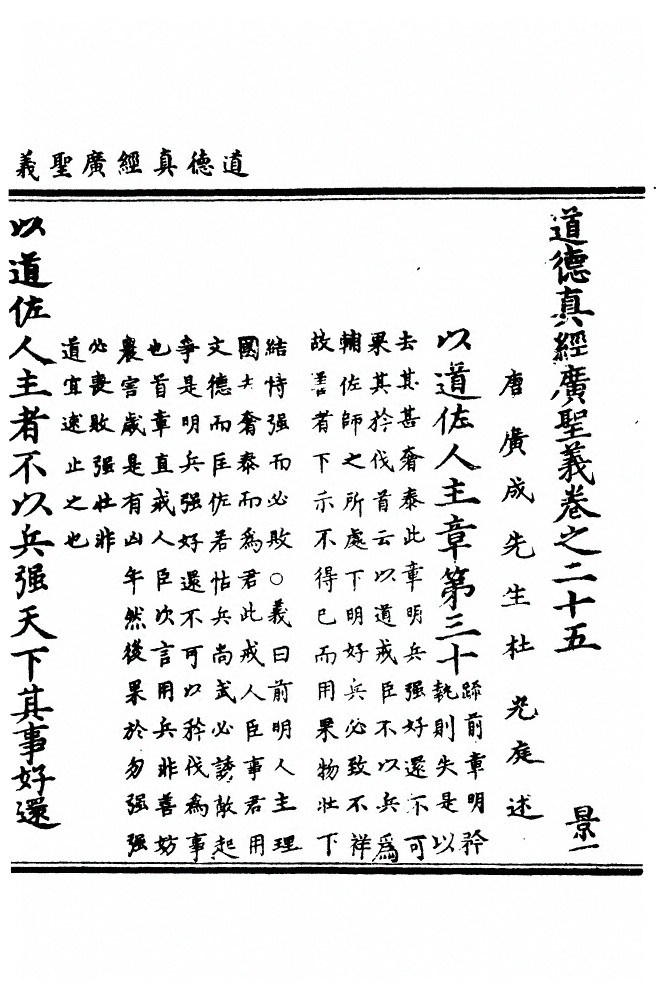 道德真經廣聖義
道德真經廣聖義卷之二十五 景一
唐廣成先生杜光庭述
以道佐人主章第三十
疏前章明矜
執則失是以
去其甚奢泰此章明兵强好還不可
果其矜伐首云以道戒臣不以兵為
輔佐師之所處下明好兵必致不祥
故善者下示不得已而用果物壯下
結恃强而必敗○義曰前明人主理
國去奢泰而為君此戒人臣事君用
文德而匡佐若怙兵尚武必誘敵起
爭是明兵强好還不可以矜伐為事
也首章直戒人臣次言用兵非善妨
農害歲是有凶年然後果於勿强强
必喪敗强壯非
道宜速止之也
以道佐人主者不以兵强天下其事好還